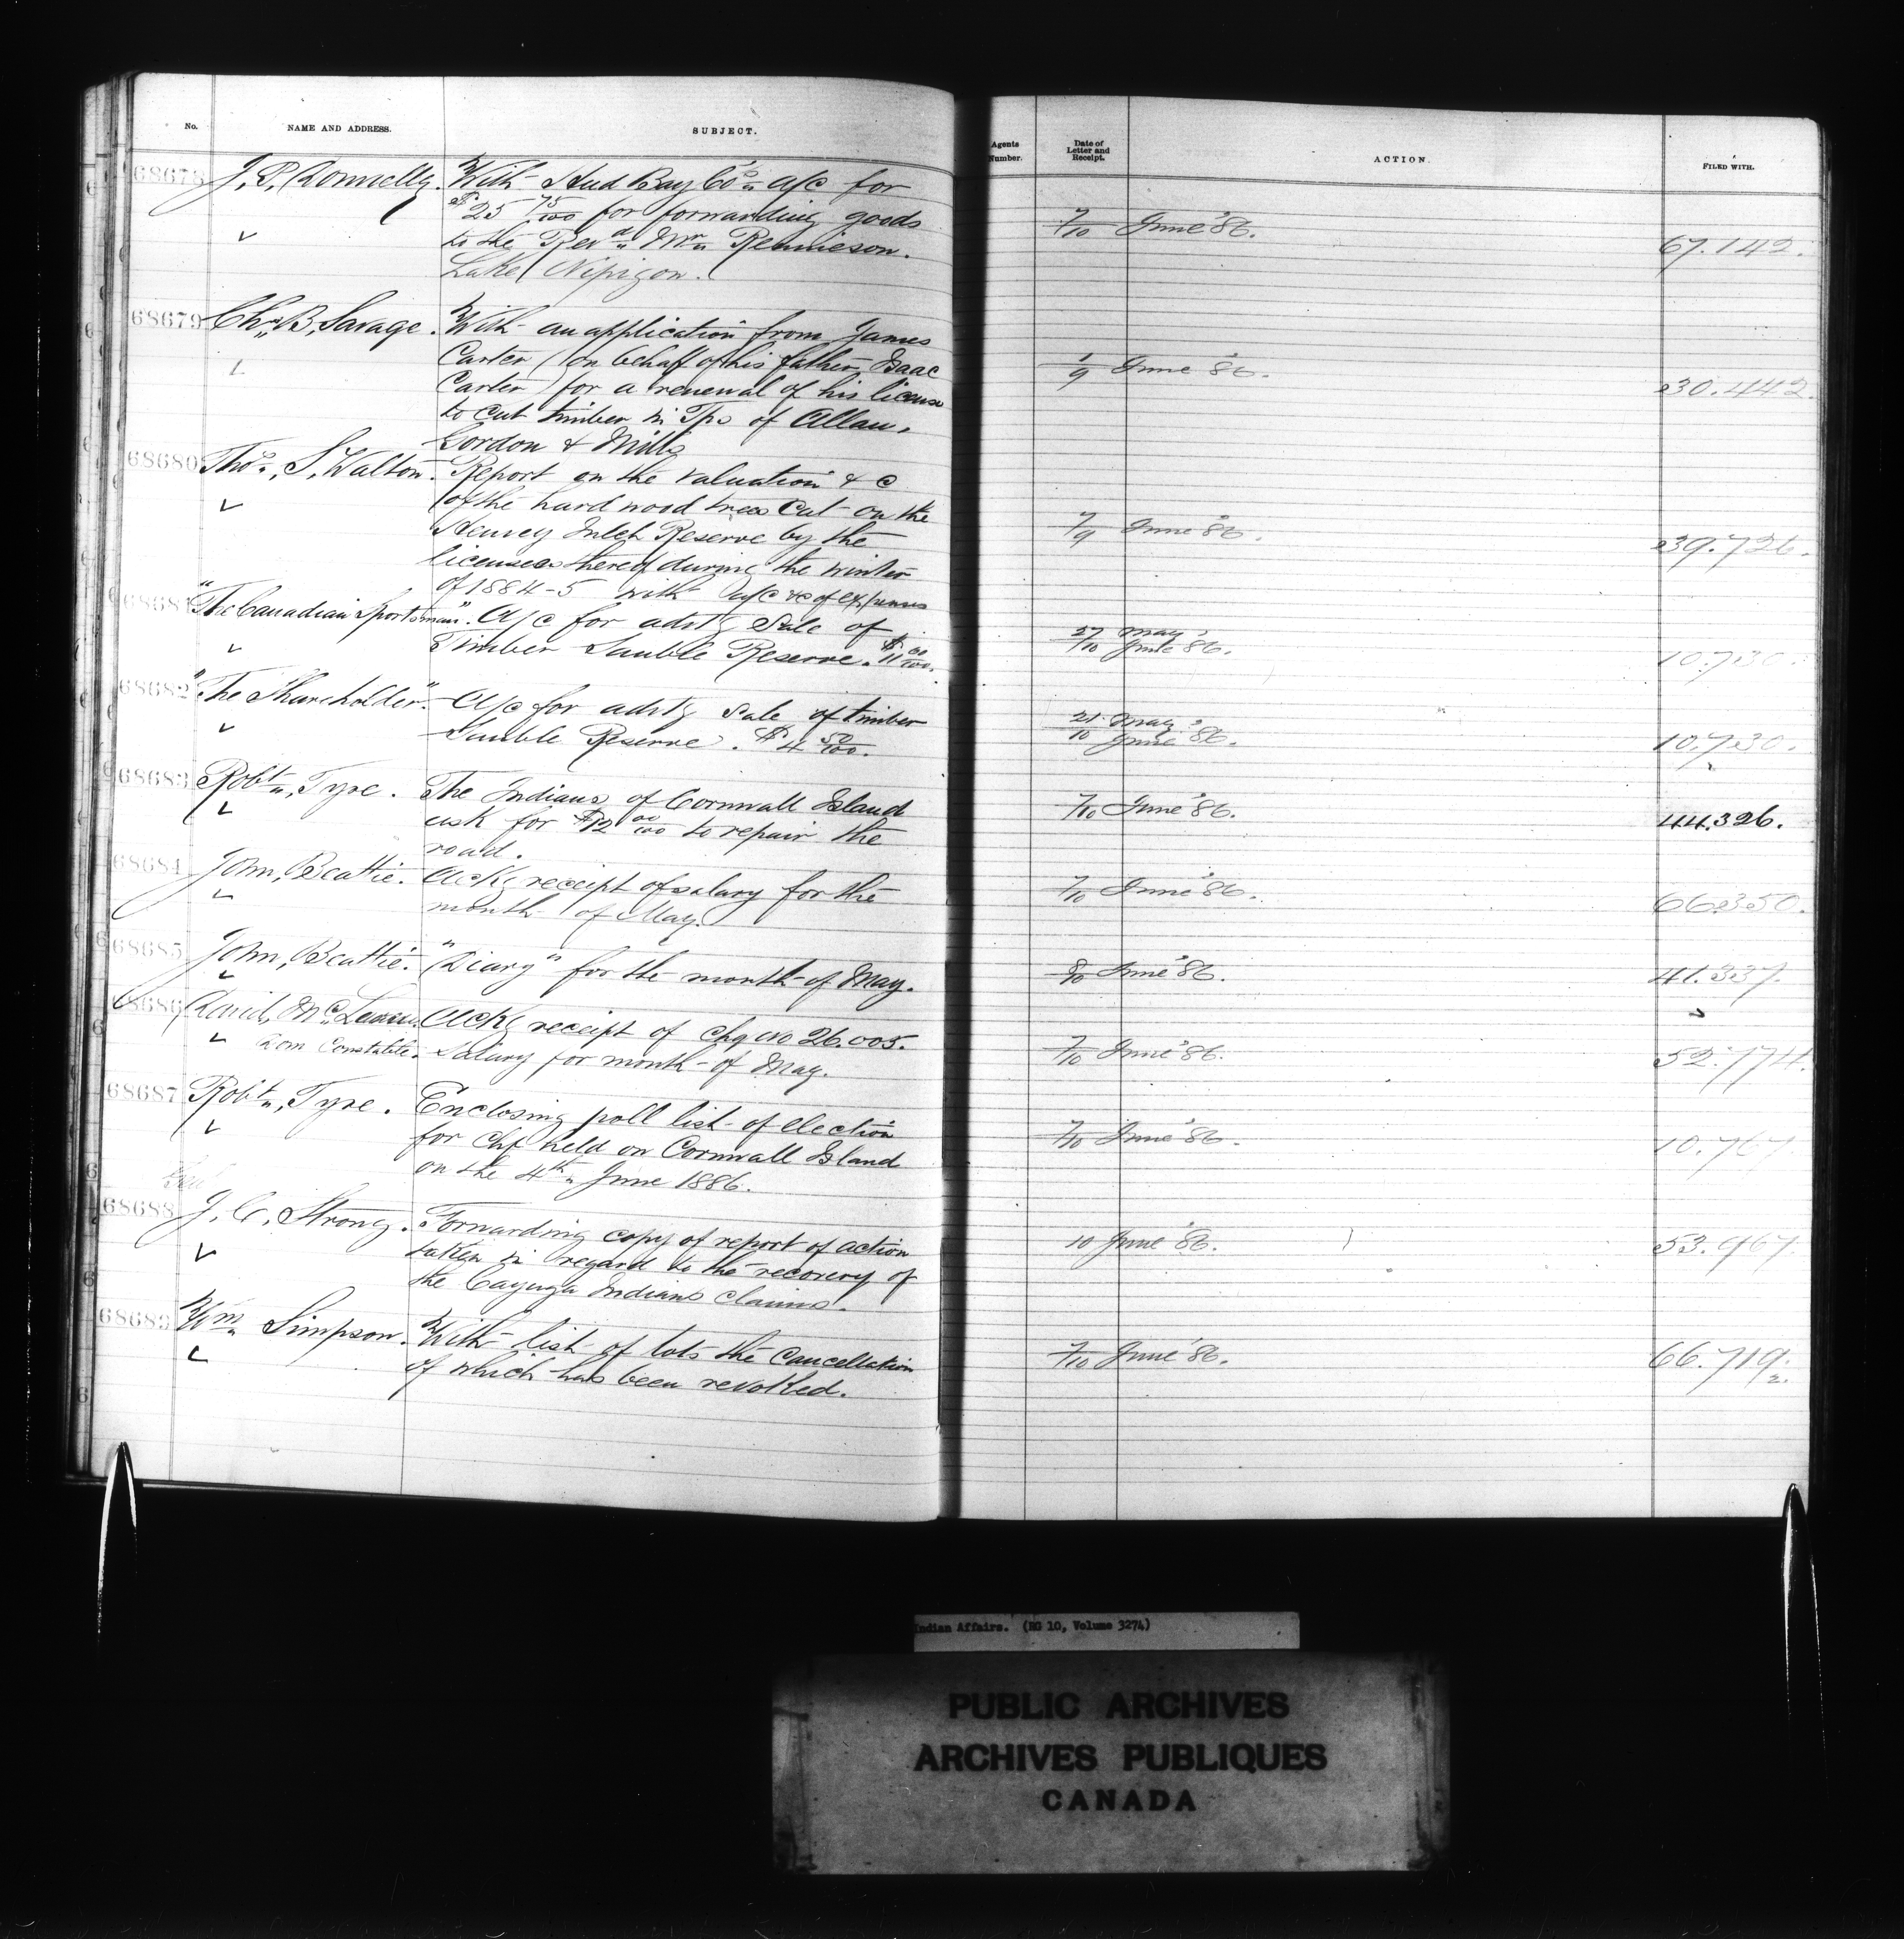 No. NAME AND ADDRESS. SUBJECT. Agents Number. Date of Letter and Receipt. ACTION. FILED WITH.
68678 J. P. Donnelly. With Hud Bay Co's a/c for
$25 75/100 for forwarding goods 7/10 June '86.
to the Revd Mr Rennieson. 67.142.
Lake Nipigon.
68679 Chs B, Savage. With an application from James
Carter (on behalf of his father Isaac 1/9 June '86.
Carter) for a renewal of his license 30.442.
to cut timber in Tps of Allan,
Gordon & Mills
68680 Thos, S, Walton. Report on the valuation & c
of the hard wood trees cut on the
Henvey Inlet Reserve by the 7/9 June '86. 39.726.
licensees thereof during the winter
of 1884-5 with a/c &c of expenses
68681 "The Canadian Sportsman". A/c for advtg Sale of
Timber Sauble Reserve. $11 00/100. 27/10 May June '86. 10.730.
68682 "The Shareholder". A/c for advtg sale of timber
Sauble Reserve. $4 50/100. 21/10 May June '86. 10.730.
68683 Robt, Tyre. The Indians of Cornwall Island
ask for $12 00/100 to repair the 7/10 June '86. 44.326.
road.
68684 John, Beattie. Ackg receipt of salary for the
month of May. 7/10 June '86. 66350.
68685 John, Beattie. "Diary" for the month of May. 8/10 June '86. 41.337.
68686 David, Mc Ackg receipt of chq no 26.005.
Dom Constable. Salary for month of May. 7/10 June '86. 52.774.
68687 Robt, Tyre. Enclosing poll list of election
for Chf held on Cornwall Island 7/10 June '86. 10.767
on the 4th June 1886.
68688 J, C, Strong. Forwarding copy of report of action
taken in regard to the recovery of 10 June '86. 53.967
the Cayuga Indians claims.
68689 Wm Simpson. With list of lots the cancellation
of which has been revoked. 7/10 June '86. 66.719
2.
Indian Affairs. (RG 10, Volume 3274)
PUBLIC ARCHIVES
ARCHIVES PUBLIQUES
CANADA